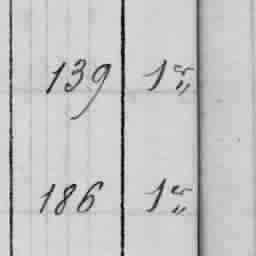 139 1er "
186 1er "